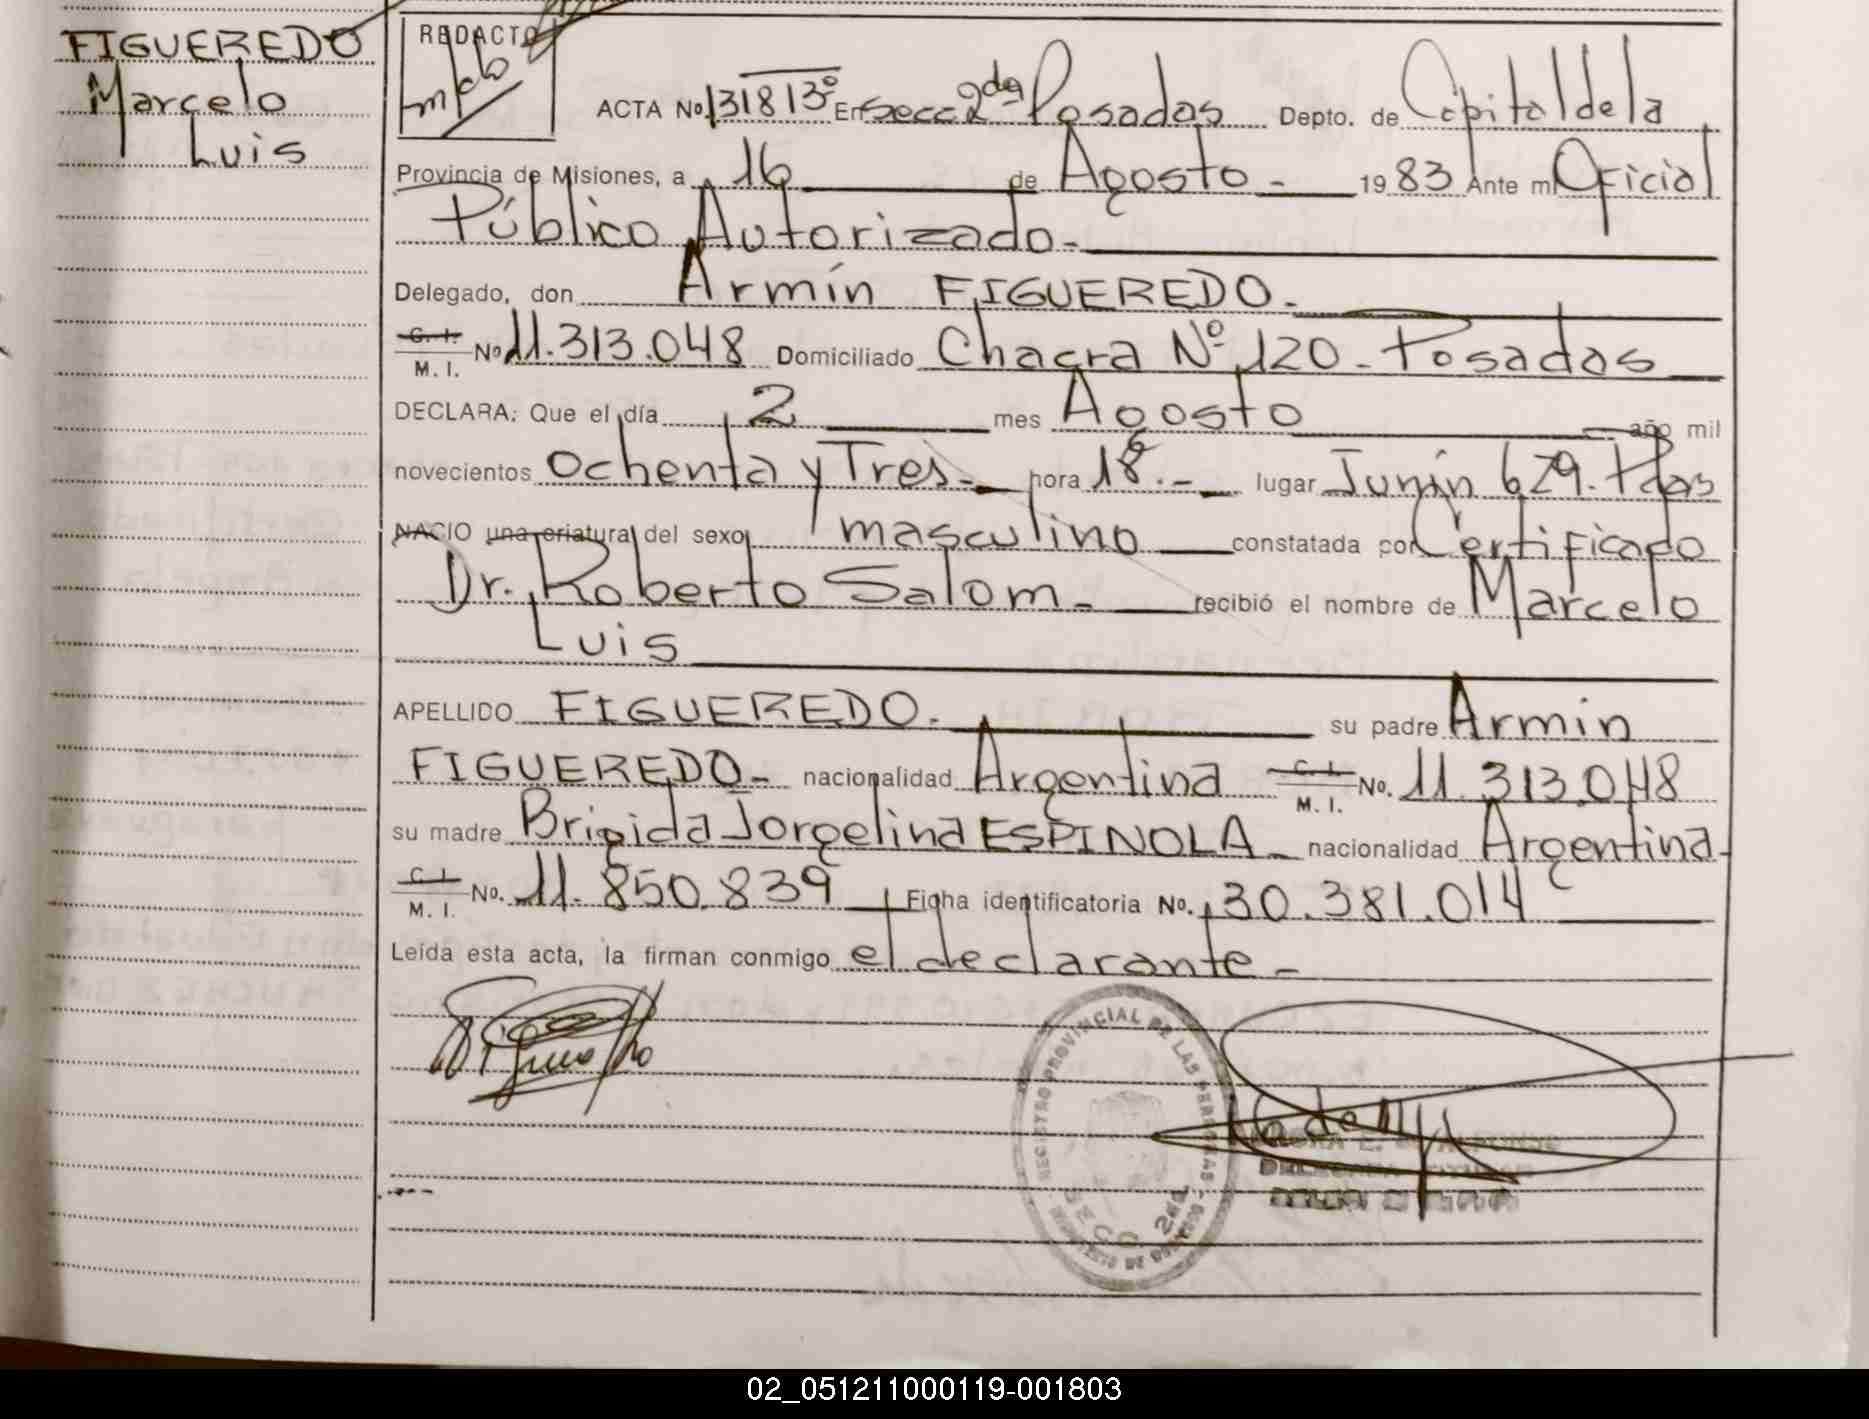 FIGUEREDO
Marcelo
Luis
REDACTO
ACTA No. 131813° En secc 2da Posadas Depto. de Capital de la
Provincia de Misiones, a 16 de Agosto - 1983 Ante mi Oficial
Público Autorizado -
Delegado, don Armín FIGUEREDO. -
C. I. M. I. No 11.313.048 Domiciliado Chacra Nº 120 - Posadas
DECLARA: Que el día 2 mes Agosto año mil
novecientos ochenta y Tres - hora 18 - lugar Junín 679. Pdas
NACIO una criatura del sexo masculino constatada por Certificado
Dr. Roberto Salom - recibió el nombre de Marcelo
Luis
APELLIDO FIGUEREDO. su padre Armin
FIGUEREDO - nacionalidad Argentina C. I. M. I. No. 11.313.048
su madre Brigida Jorgelina ESPINOLA - nacionalidad Argentina -
C. I. M. I. No. 11.850.839 Ficha identificatoria No. 30.381.014
Leída esta acta, la firman conmigo el declarante -
REGISTRO PROVINCIAL DE LAS PERSONAS
SECC. 2da
02_051211000119-001803